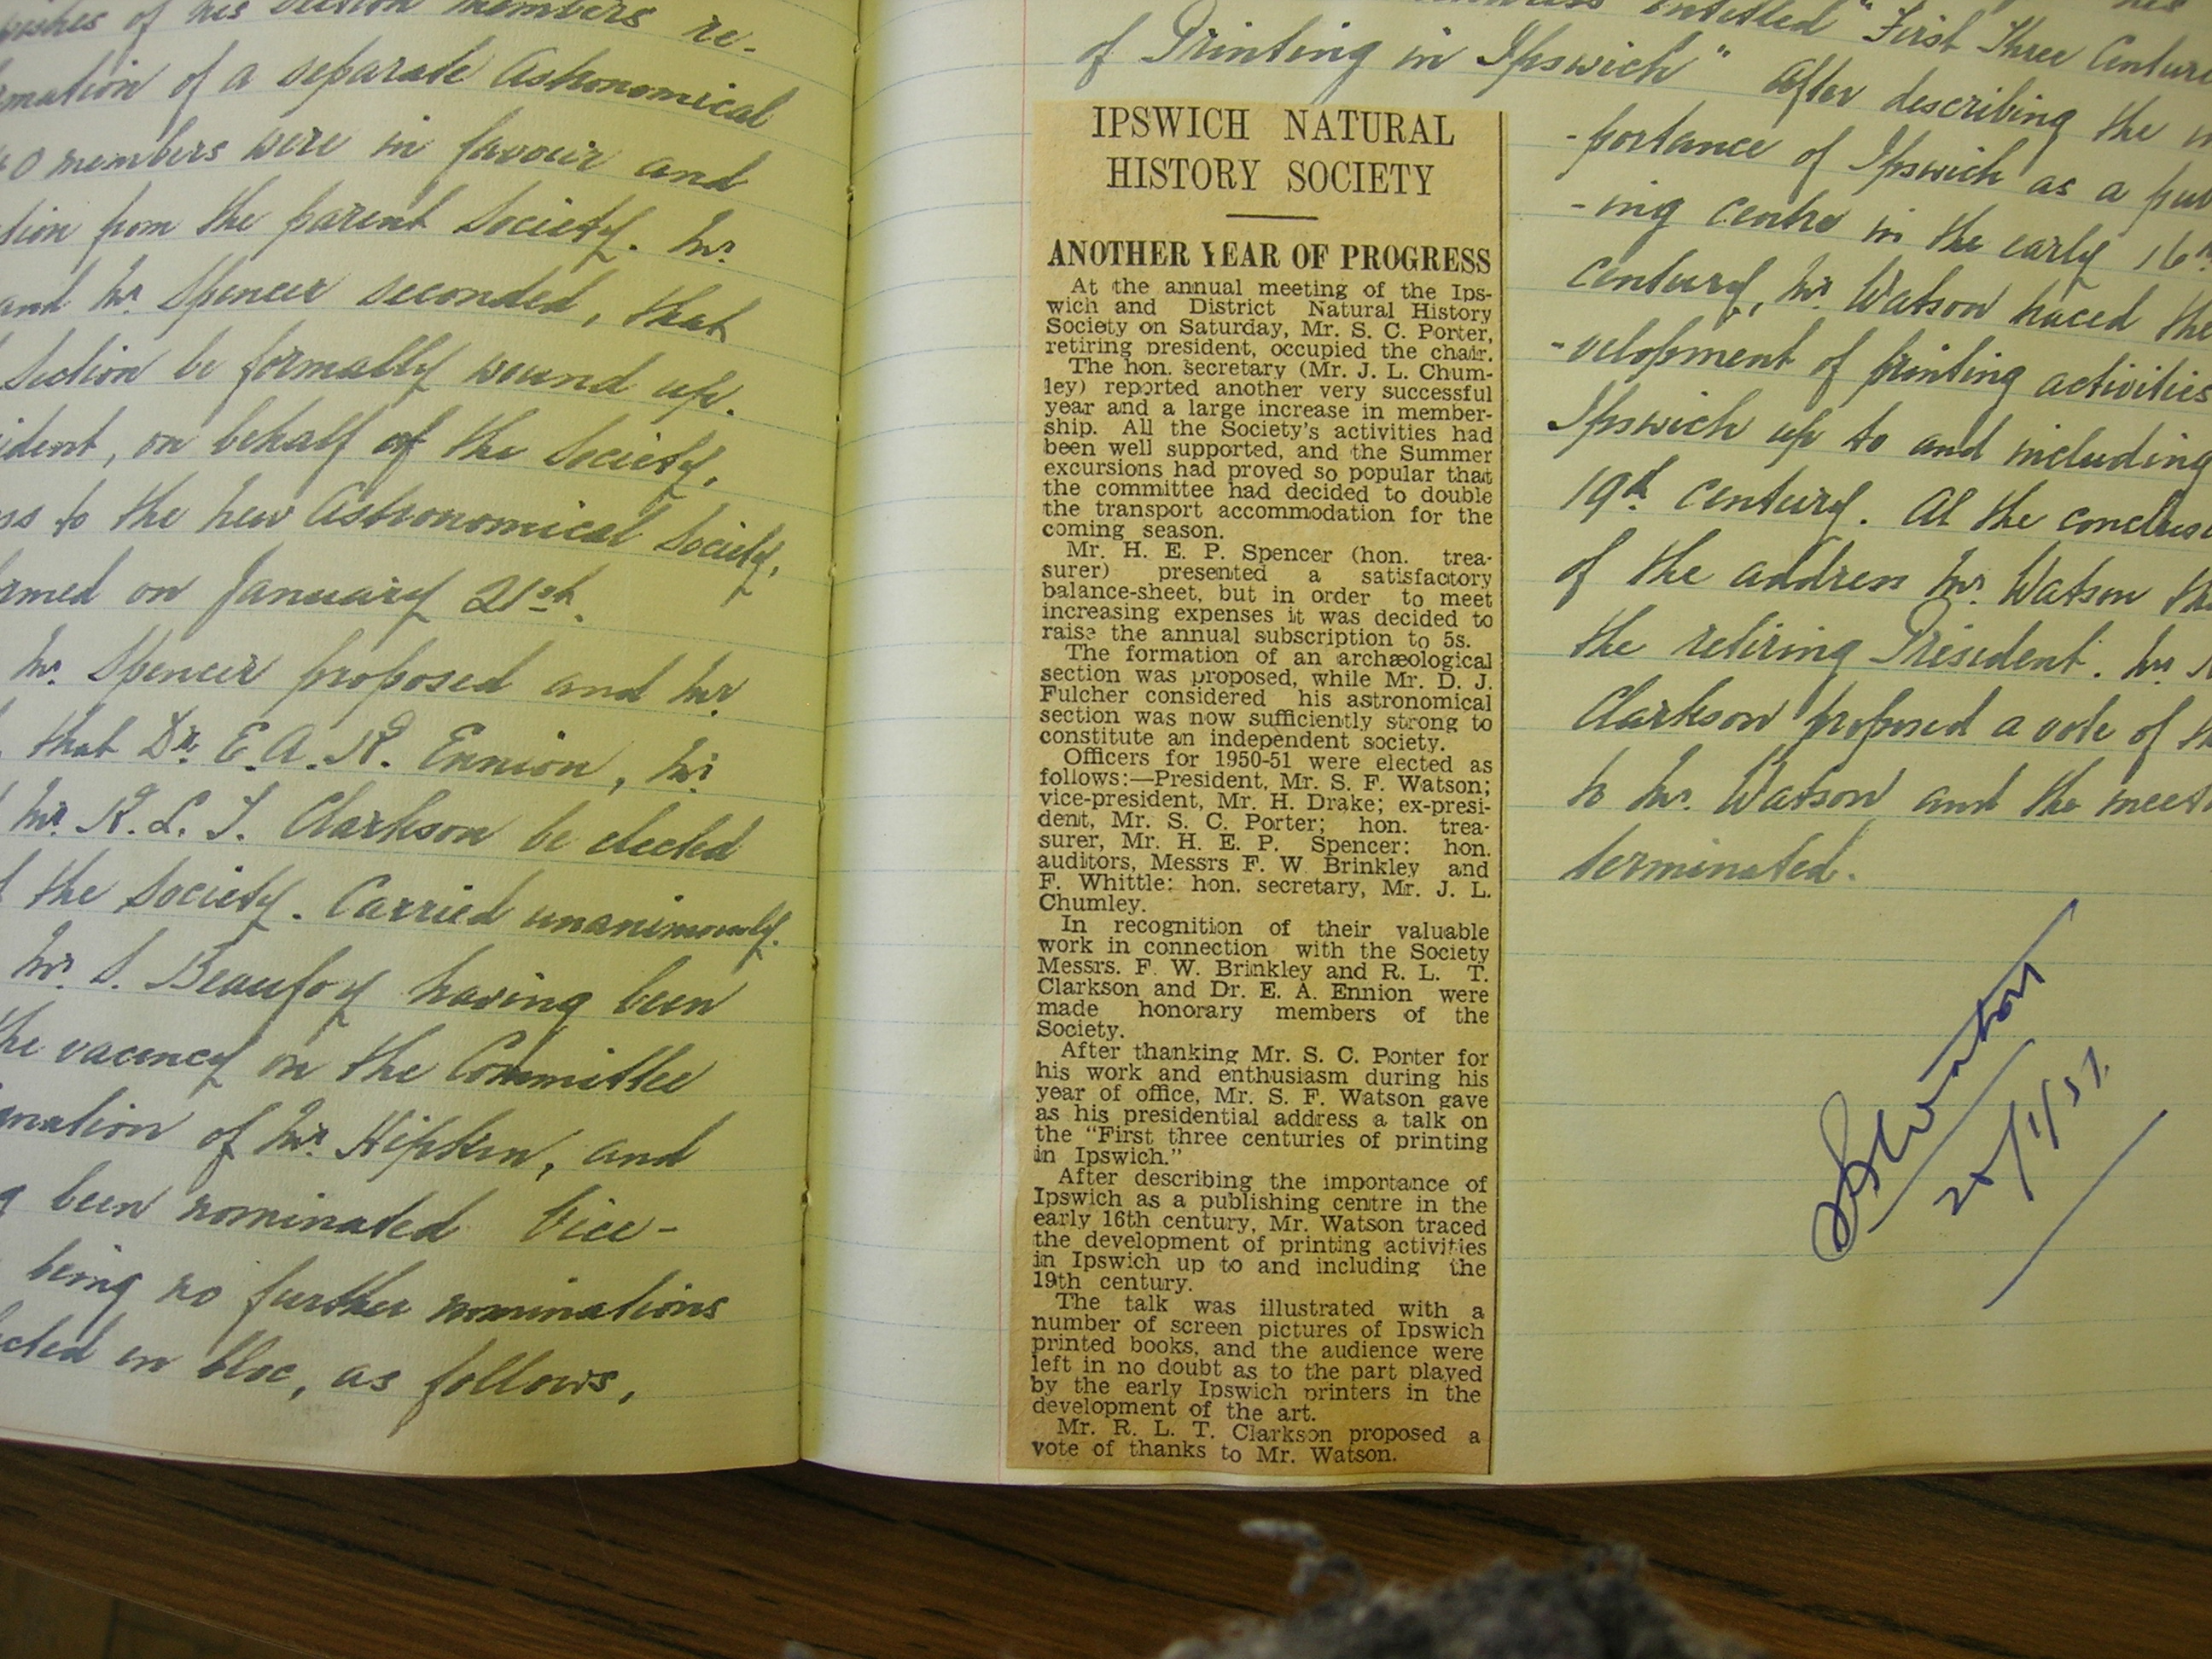 wishes of his section members re-
mation of a separate Astronomical
40 members were in favour and
tion from the parent Society. Mr.
and Mr. Spencer seconded, that
Section be formally wound up.
ident, on behalf of the Society,
ss to the new Astronomical Society,
rmed on January 21st.
Mr. Spencer proposed and Mr
that Dr. E. A. R. Ennion, Mr
Mr. R. L. T. Clarkson be elected
the Society. Carried unanimously.
Mr. S. Beaufoy having been
the vacancy on the Committee
ination of Mr. Hipkin, and
been nominated Vice-
being no further nominations
cted en bloc, as follows,
entitled "First Three Centuri
of Printing in Ipswich" After describing the
IPSWICH NATURAL
HISTORY SOCIETY
ANOTHER YEAR OF PROGRESS
At the annual meeting of the Ips-
wich and District Natural History
Society on Saturday, Mr. S. C. Porter,
retiring president, occupied the chair.
The hon. secretary (Mr. J. L. Chum-
ley) reported another very successful
year and a large increase in member-
ship. All the Society's activities had
been well supported, and the Summer
excursions had proved so popular that
the committee had decided to double
the transport accommodation for the
coming season.
Mr. H. E. P. Spencer (hon. trea-
surer) presented a satisfactory
balance-sheet, but in order to meet
increasing expenses it was decided to
raise the annual subscription to 5s.
The formation of an archæological
section was proposed, while Mr. D. J.
Fulcher considered his astronomical
section was now sufficiently strong to
constitute an independent society.
Officers for 1950-51 were elected as
follows:—President, Mr. S. F. Watson;
vice-president, Mr. H. Drake; ex-presi-
dent, Mr. S. C. Porter; hon. trea-
surer, Mr. H. E. P. Spencer: hon.
auditors, Messrs F. W. Brinkley and
F. Whittle; hon. secretary, Mr. J. L.
Chumley.
In recognition of their valuable
work in connection with the Society
Messrs. F. W. Brinkley and R. L. T.
Clarkson and Dr. E. A. Ennion were
made honorary members of the
Society.
After thanking Mr. S. C. Porter for
his work and enthusiasm during his
year of office, Mr. S. F. Watson gave
as his presidential address a talk on
the "First three centuries of printing
in Ipswich."
After describing the importance of
Ipswich as a publishing centre in the
early 16th century, Mr. Watson traced
the development of printing activities
in Ipswich up to and including the
19th century.
The talk was illustrated with a
number of screen pictures of Ipswich
printed books, and the audience were
left in no doubt as to the part played
by the early Ipswich printers in the
development of the art.
Mr. R. L. T. Clarkson proposed a
vote of thanks to Mr. Watson.
-portance of Ipswich as a pub
-ing centre in the early 16th
century, Mr Watson traced the
-velopment of printing activities
Ipswich up to and including
19th century. At the conclusi
of the address Mr. Watson th
the retiring President. Mr
Clarkson proposed a vote of th
to Mr. Watson and the meet
terminated.